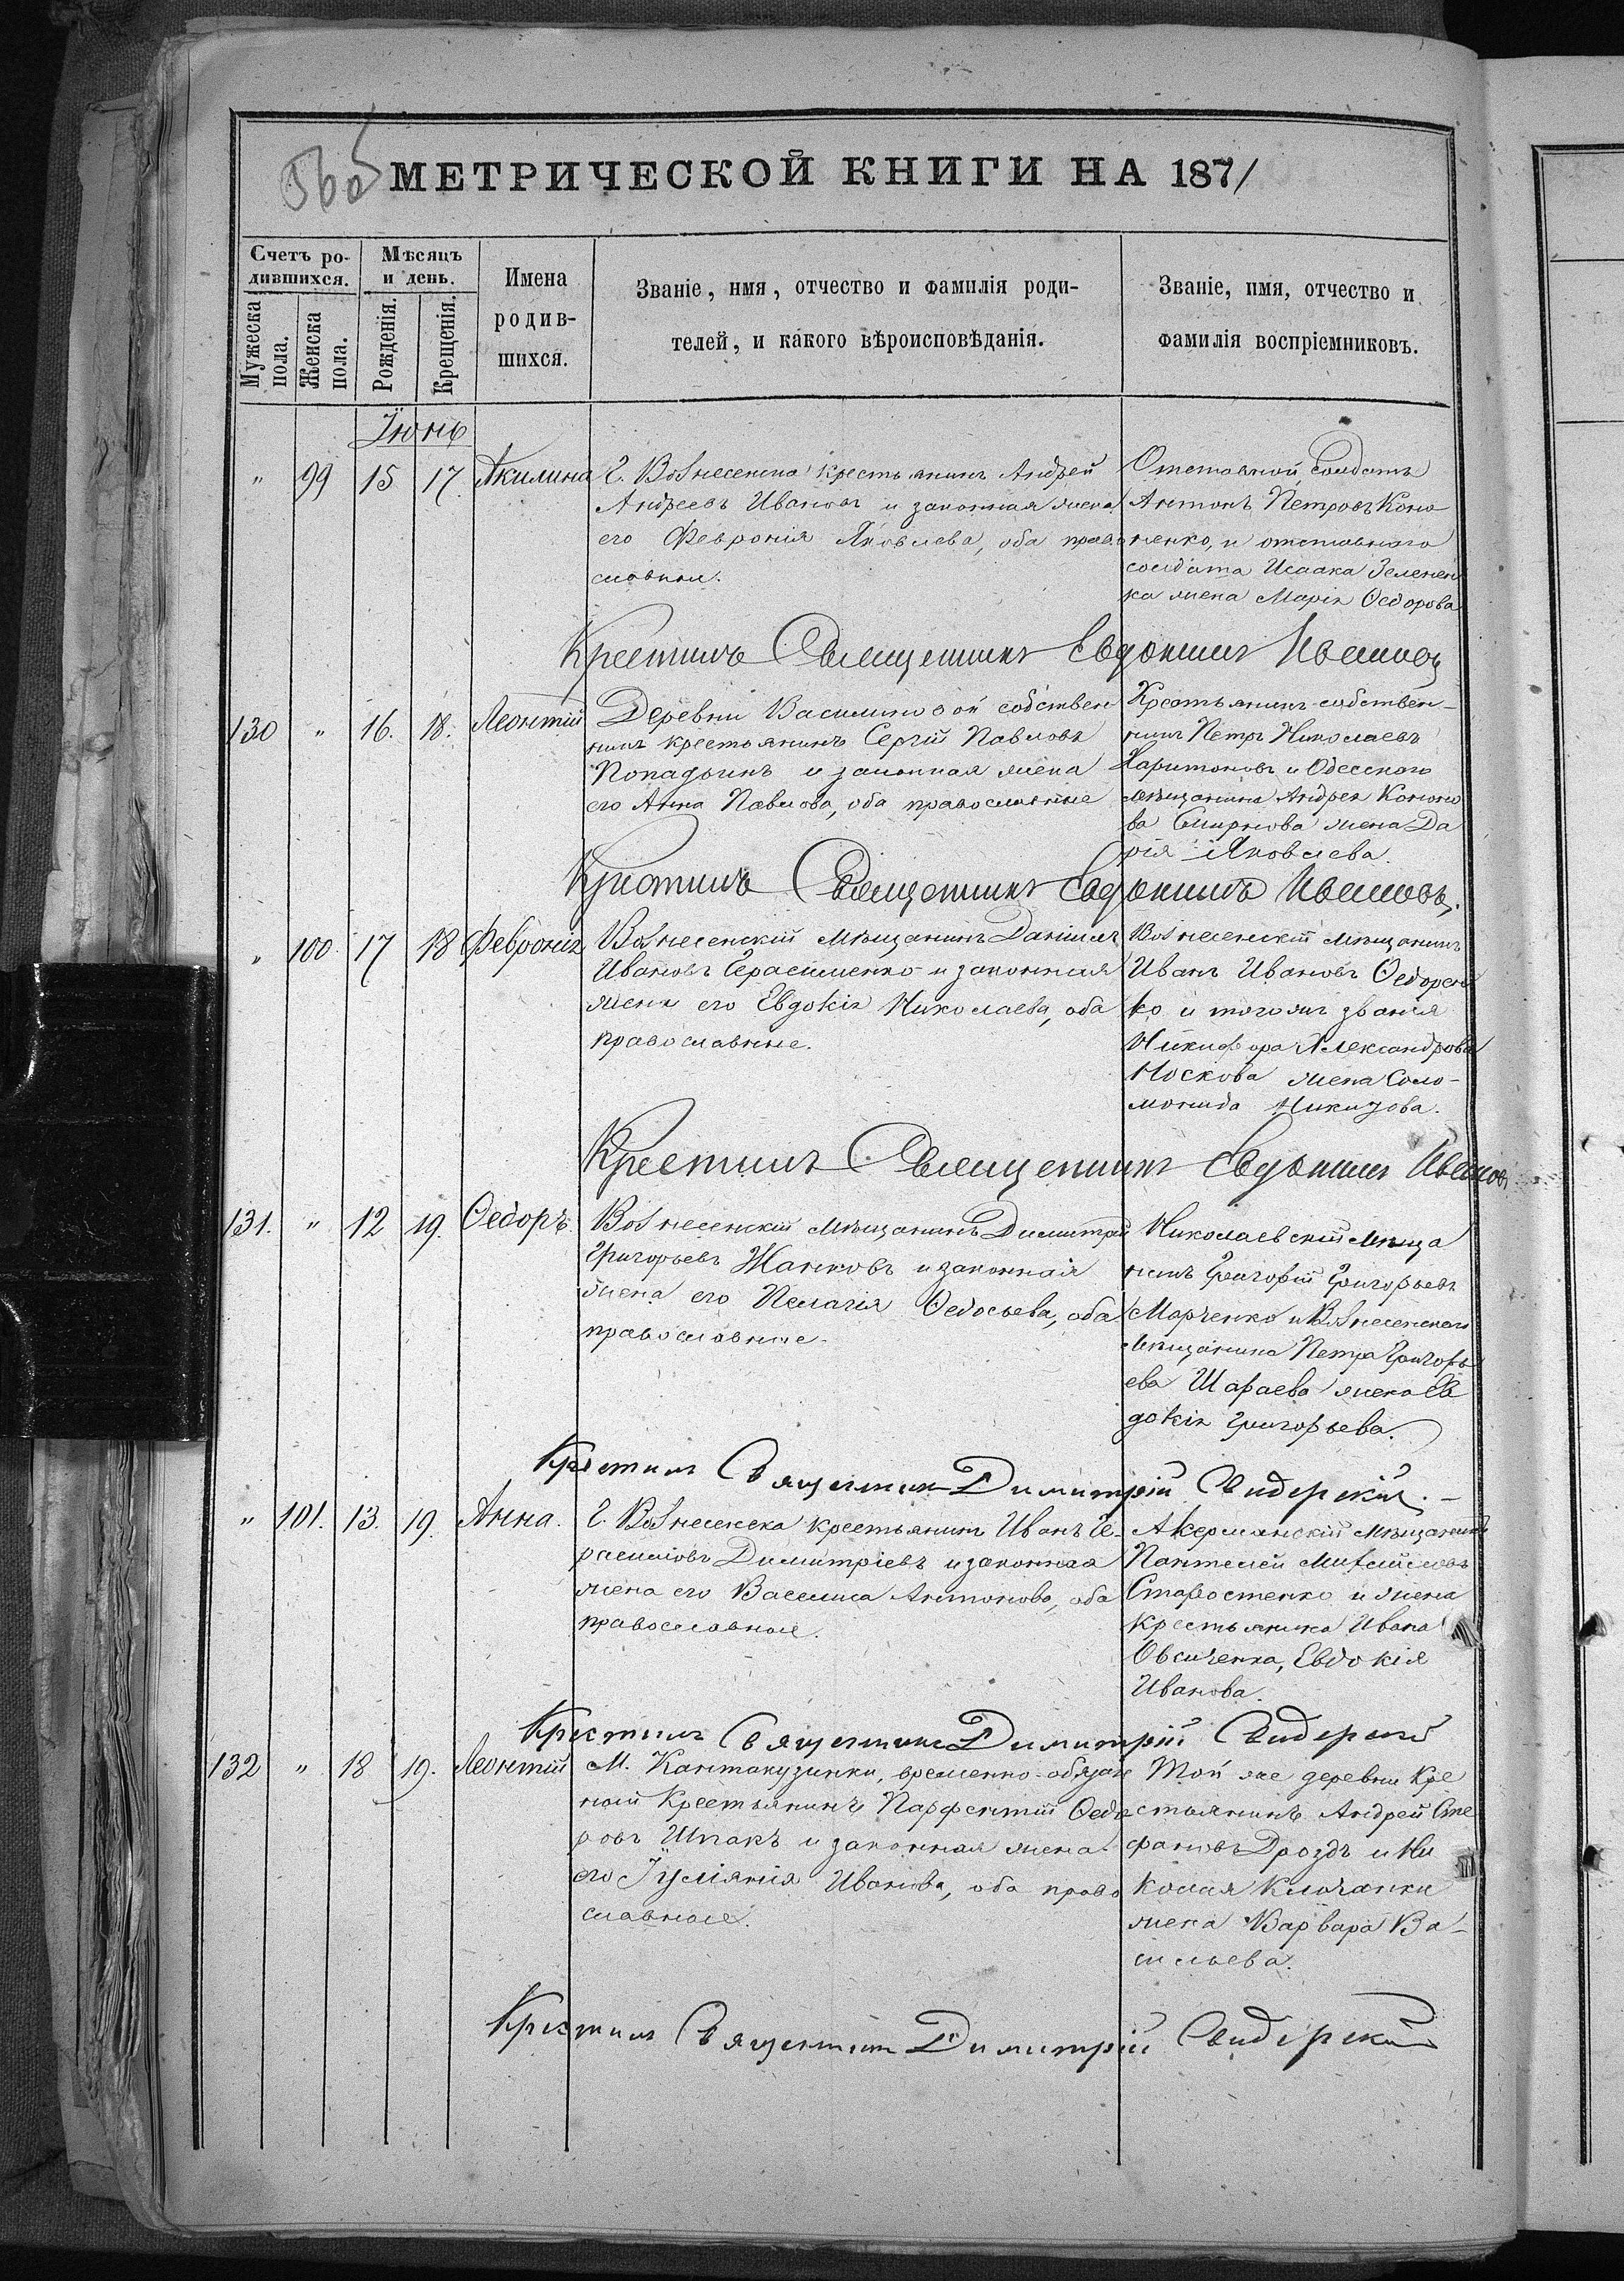 МЕТРИЧЕСКОЙ КНИГИ НА 1871
Счетъ ро-
дившихся.
Мѣсяцъ
и день.
Мужеска
пола.
Женска
пола.
Рожденія.
Крещенія.
Имена
родив-
шихся.
Званіе, имя, отчество и фамилія роди-
телей, и какого вѣроисповѣданія.
Званіе, имя, отчество и
фамилія воспріемниковъ.
Іюнь
" 99 15 17. Акилина
Г. Вознесенска крестьянинъ Андрей
Андреевъ Ивановъ и законная жена
его Феврония Яковлева, оба право
славные.
Отставной солдатъ
Антонъ Петровъ Коно
ненко, и отставнаго
солдата Исаака Зеленен
ка жена Марія Ѳедорова
Крестилъ Священникъ Евдокимъ Ивановъ
130 " 16. 18. Леонтій
Деревни Василиновой собствен
никъ крестьянинъ Сергій Павловъ
Попадьинъ и законная жена
его Анна Павлова, оба православные
Крестьянинъ-собствен-
никъ Петръ Николаевъ
Харитоновъ и Одесскаго
мѣщанина Андрея Кононо
ва Смирнова жена Да
рія Яковлева.
Крестилъ Священникъ Евдокимъ Ивановъ.
" 100 17 18 Февронія
Вознесенскій мѣщанинъ Даніилъ
Ивановъ Герасименко и законная
жена его Евдокія Николаева, оба
православные.
Вознесенскій мѣщанинъ
Иванъ Ивановъ Ѳедорен
ко и тогожъ званія
Никифора Александрова
Носкова жена Соло-
монида Никизова.
Крестилъ Священникъ Евдокимъ Ивановъ
131. " 12 19. Ѳедоръ.
Вознесенскій мѣщанинъ Димитрій
Григорьевъ Жанковъ и законная
жена его Пелагія Ѳедосьева, оба
православные.
Николаевскій мѣща
нинъ Григорій Григорьевъ
Марченко и Вознесенскаго
мѣщанина Петра Григорь
ева Шараева жена Ев
докія Григорьева.
Крестилъ Священникъ Димитрій Свидерскій. –
" 101. 13. 19. Анна.
Г. Вознесенска крестьянинъ Иванъ Ге-
расимовъ Димитріевъ и законная
жена его Василиса Антонова, оба
православные.
Акерманскій мѣщанинъ
Пантелей
Старостенко и жена
крестьянина Ивана
Овсиченка, Евдокія
Иванова.
Крестилъ Священникъ Димитрій Свидерскій
132 " 18 19. Леонтій
М. Кантакузинки, временно-обязан
ный Крестьянинъ Парфентій Ѳедо
ровъ Шпакъ и законная жена
его Іуліянія Иванова, оба право
славные.
Той же деревни Кре
стьянинъ Андрей Сте
фановъ Дроздъ и Ни
колая Ключанки
жена Варвара Ва-
сильева.
Крестилъ Священникъ Димитрій Свидерскій